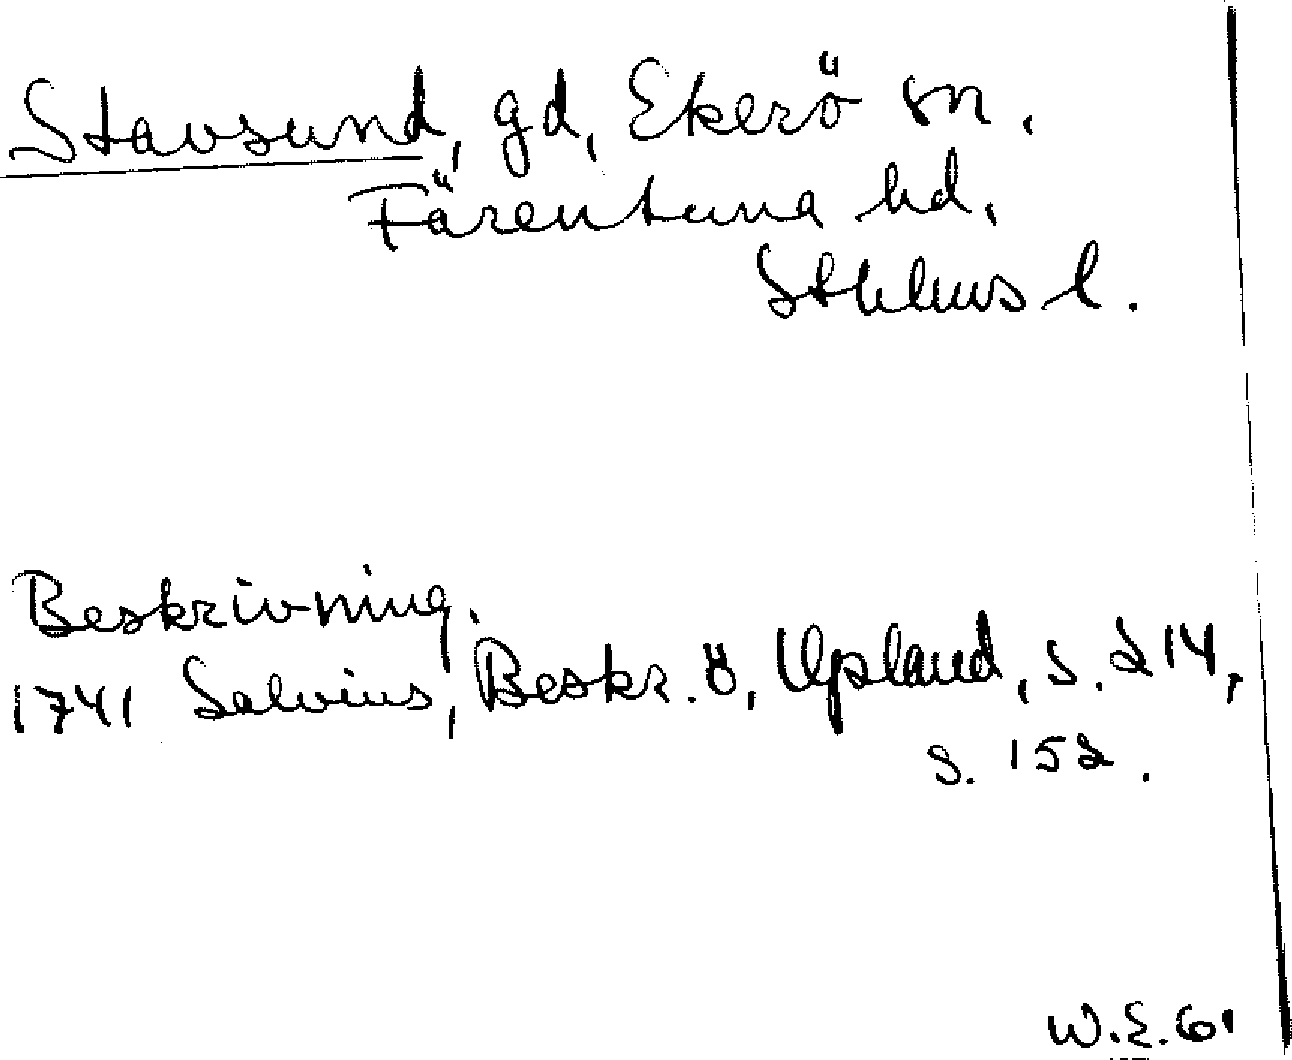 Stavsund, gd, Ekerö sn.
Färentuna hd.
Sthlms l.
Beskrivning.
1741 Salvius, Beskr. ö, Upland, s. 214,
s. 152.
W.E. 61